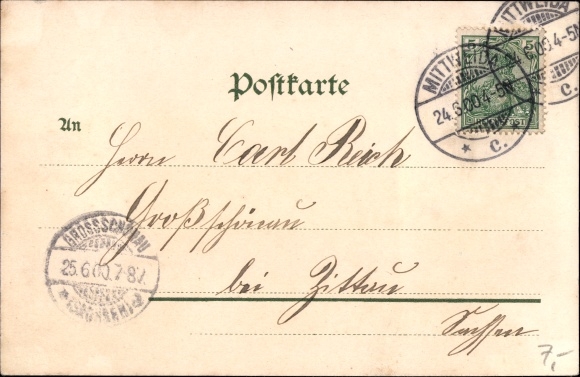 MITTWEIDA
Postkarte
5 5
MITTWEIDA
24.6.00.4-5N
* c.
00.4-5N
c.
An
Herrn Carl Reich
Großschönau
GROSSSCHÖNAU
25.6.00.7-8V.
bei Zittau
Sachsen
7,-